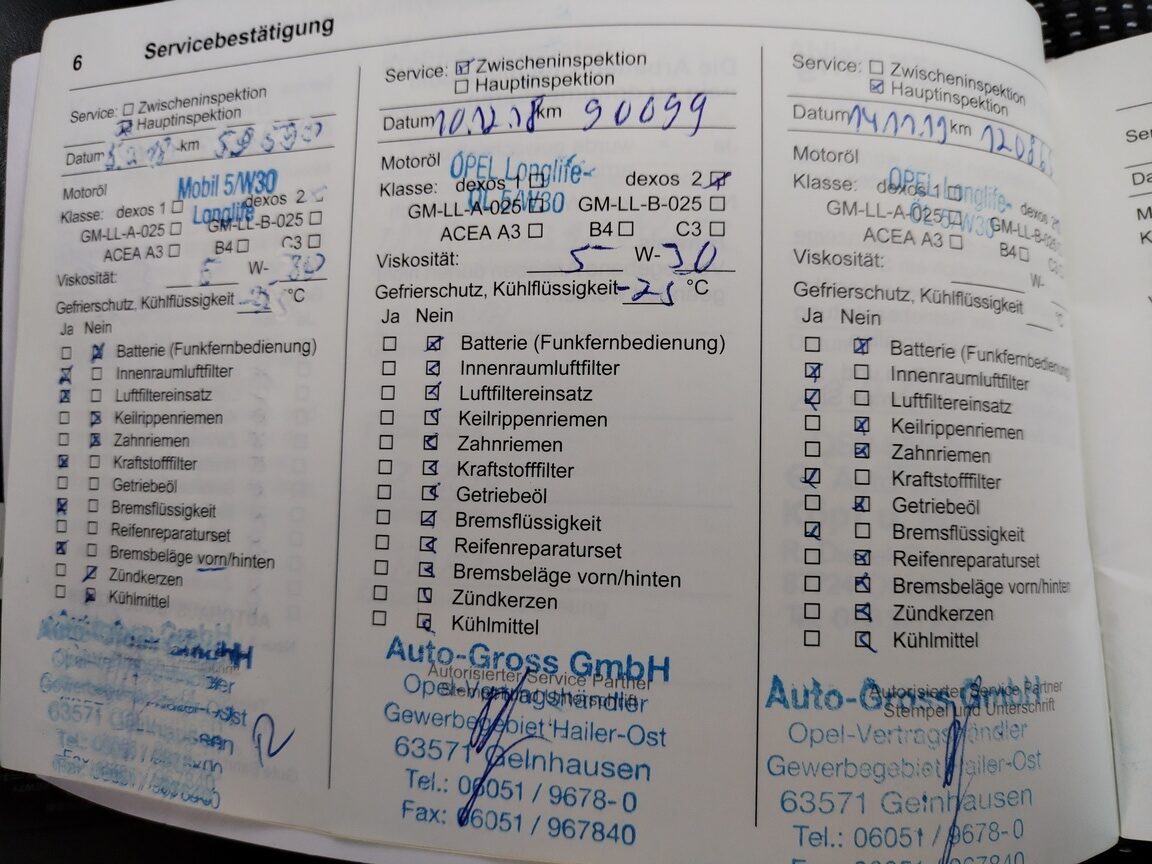 6
Servicebestätigung
Service: Zwischeninspektion
Hauptinspektion
Datum km
Motoröl
Mobil 5/W30
Longlife
Klasse: dexos 1 dexos 2
GM-LL-A-025 GM-LL-B-025
ACEA A3 B4 C3
Viskosität: 5 W- 30
Gefrierschutz, Kühlflüssigkeit -25 °C
Ja Nein
Batterie (Funkfernbedienung)
Innenraumluftfilter
Luftfiltereinsatz
Keilrippenriemen
Zahnriemen
Kraftstofffilter
Getriebeöl
Bremsflüssigkeit
Reifenreparaturset
Bremsbeläge vorn/hinten
Zündkerzen
Kühlmittel
63571 Gelnhausen
Service: Zwischeninspektion
Hauptinspektion
Datum 10.12.18 km 90099
Motoröl OPEL Longlife-
ÖL 5/W30
Klasse: dexos 1 dexos 2
GM-LL-A-025 GM-LL-B-025
ACEA A3 B4 C3
Viskosität: 5 W- 30
Gefrierschutz, Kühlflüssigkeit -25 °C
Ja Nein
Batterie (Funkfernbedienung)
Innenraumluftfilter
Luftfiltereinsatz
Keilrippenriemen
Zahnriemen
Kraftstofffilter
Getriebeöl
Bremsflüssigkeit
Reifenreparaturset
Bremsbeläge vorn/hinten
Zündkerzen
Kühlmittel
Auto-Gross GmbH
Autorisierter Service Partner
Stempel und Unterschrift
Opel-Vertragshändler
Gewerbegebiet Hailer-Ost
63571 Gelnhausen
Tel.: 06051 / 9678-0
Fax: 06051 / 967840
Service: Zwischeninspektion
Hauptinspektion
Datum 14.11.19 km
Motoröl OPEL Longlife-
ÖL 5/W30
Klasse: dexos 1 dexos 2
GM-LL-A-025 GM-LL-B-025
ACEA A3 B4 C3
Viskosität: W-
Gefrierschutz, Kühlflüssigkeit °C
Ja Nein
Batterie (Funkfernbedienung
Innenraumluftfilter
Luftfiltereinsatz
Keilrippenriemen
Zahnriemen
Kraftstofffilter
Getriebeöl
Bremsflüssigkeit
Reifenreparaturset
Bremsbeläge vorn/hinten
Zündkerzen
Kühlmittel
Auto-Gross GmbH
Autorisierter Service Partner
Stempel und Unterschrift
Opel-Vertragshändler
Gewerbegebiet Hailer-Ost
63571 Gelnhausen
Tel.: 06051 / 9678-0